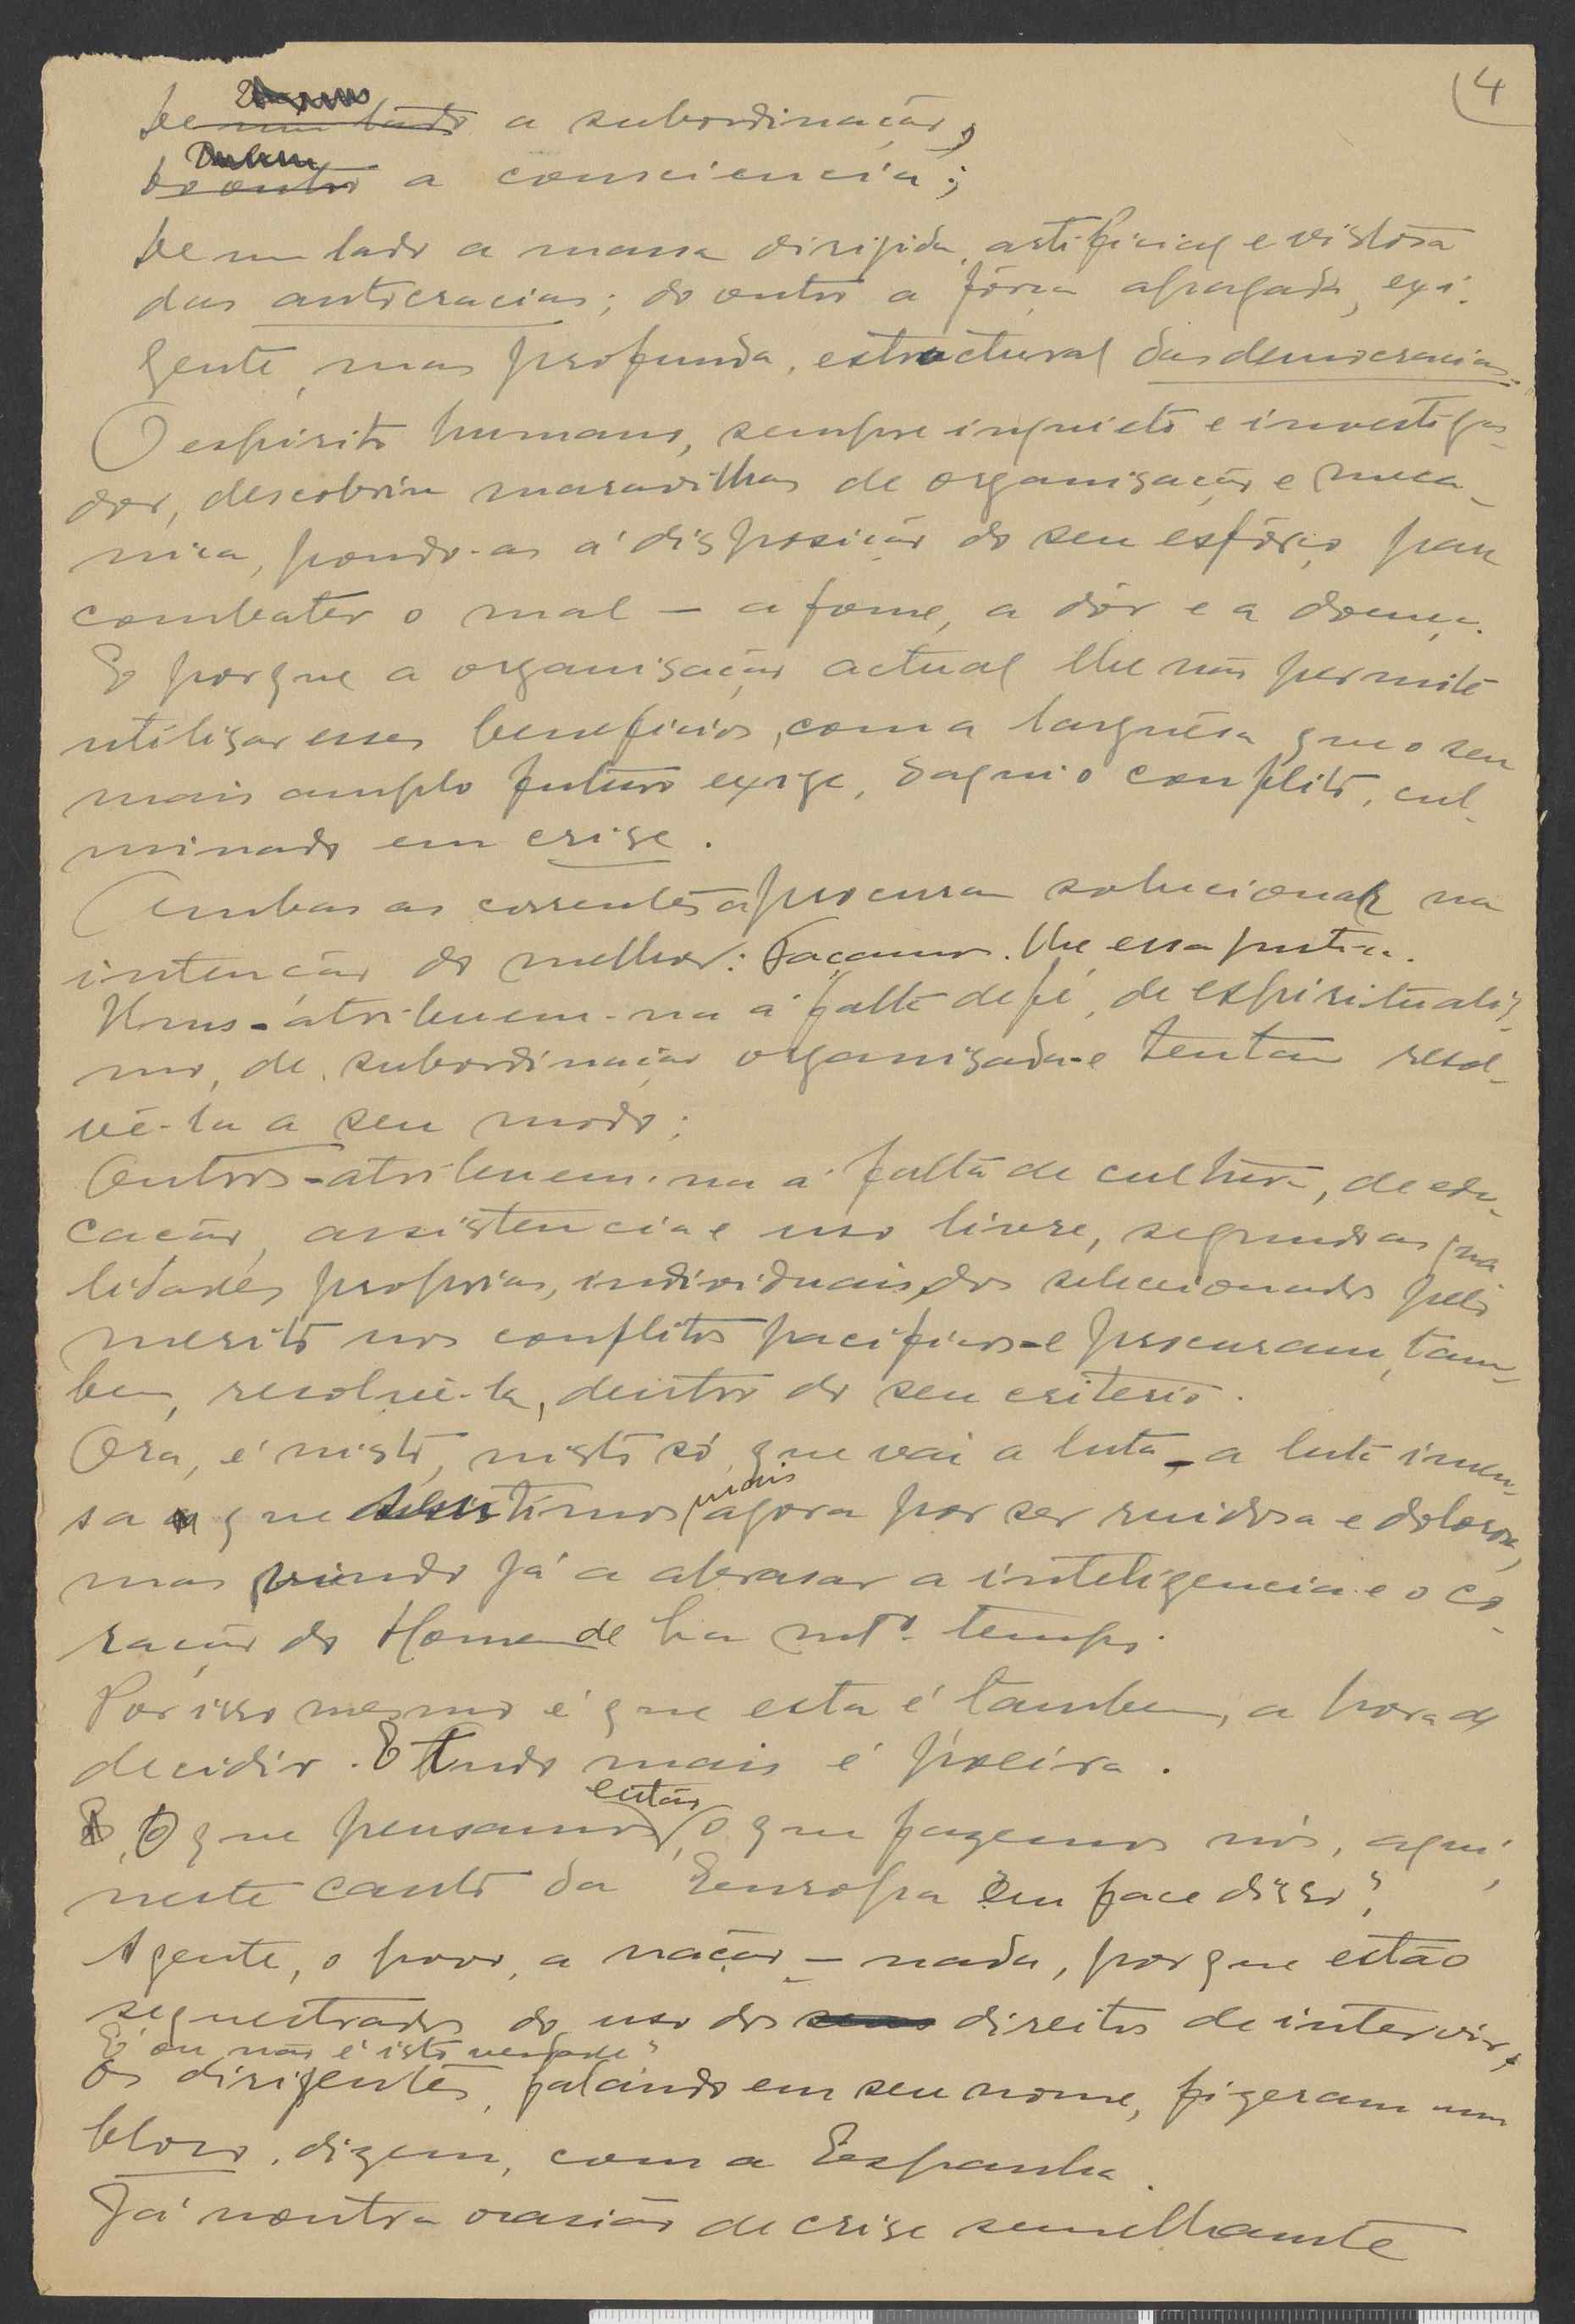 4
De um lado a subordinação,
do outro a consciencia;
De um lado a massa dirigida, artificial e vistosa
das autocracias; do outro a fôrça apagada, exi-
gente, mas profunda, estructural das democracias.
O espirito humano, sempre inquieto e investiga-
dor, descobriu maravilhas de organisação e meca-
nica, pondo-as á disposição do seu esfôrço para
combater o mal – a fome, a dôr e a doença.
E porque a organisação actual lhe não permite
utilisar esses beneficios, com a larguêsa que o seu
mais amplo futuro exige, daqui o conflito, cul-
minado em crise.
Ambas as correntes a procuram solucionar na
intenção do melhor: Façamos-lhe essa justiça.
Uns - atribuem-na á falta de fé, de espiritualis-
mo, de subordinação organisada - e tentam resol-
vê-la a seu modo;
Outros - atribuem-na á falta de cultura, de edu-
cação, assistencia e uso livre, segundo as qua-
lidades proprias, individuais, dos seleccionados pelo
merito nos conflitos pacificos - e procuram, tam-
bem, resolvê-la, dentro do seu criterio.
Ora, é nisto, nisto só, que vai a luta - a luta imen-
sa que sentimos mais agora por ser ruidosa e dolorosa,
mas vindo já a abrasar a inteligencia e o co-
ração do Homem de ha mtº. tempo.
Por isso mesmo é que esta é tambem, a hora de
decidir. E tudo mais é poeira.
O que pensamos então, o que fazemos nós, aqui,
neste canto da Europa em face disso?
A gente, o povo, a nação – nada, porque estão
sequestrados do uso dos seus direitos de intervir,
É ou não é isto verdade?
Os dirigentes, falando em seu nome, fizeram um
bloco, dizem, com a Espanha.
Já noutra ocasião de crise semelhante